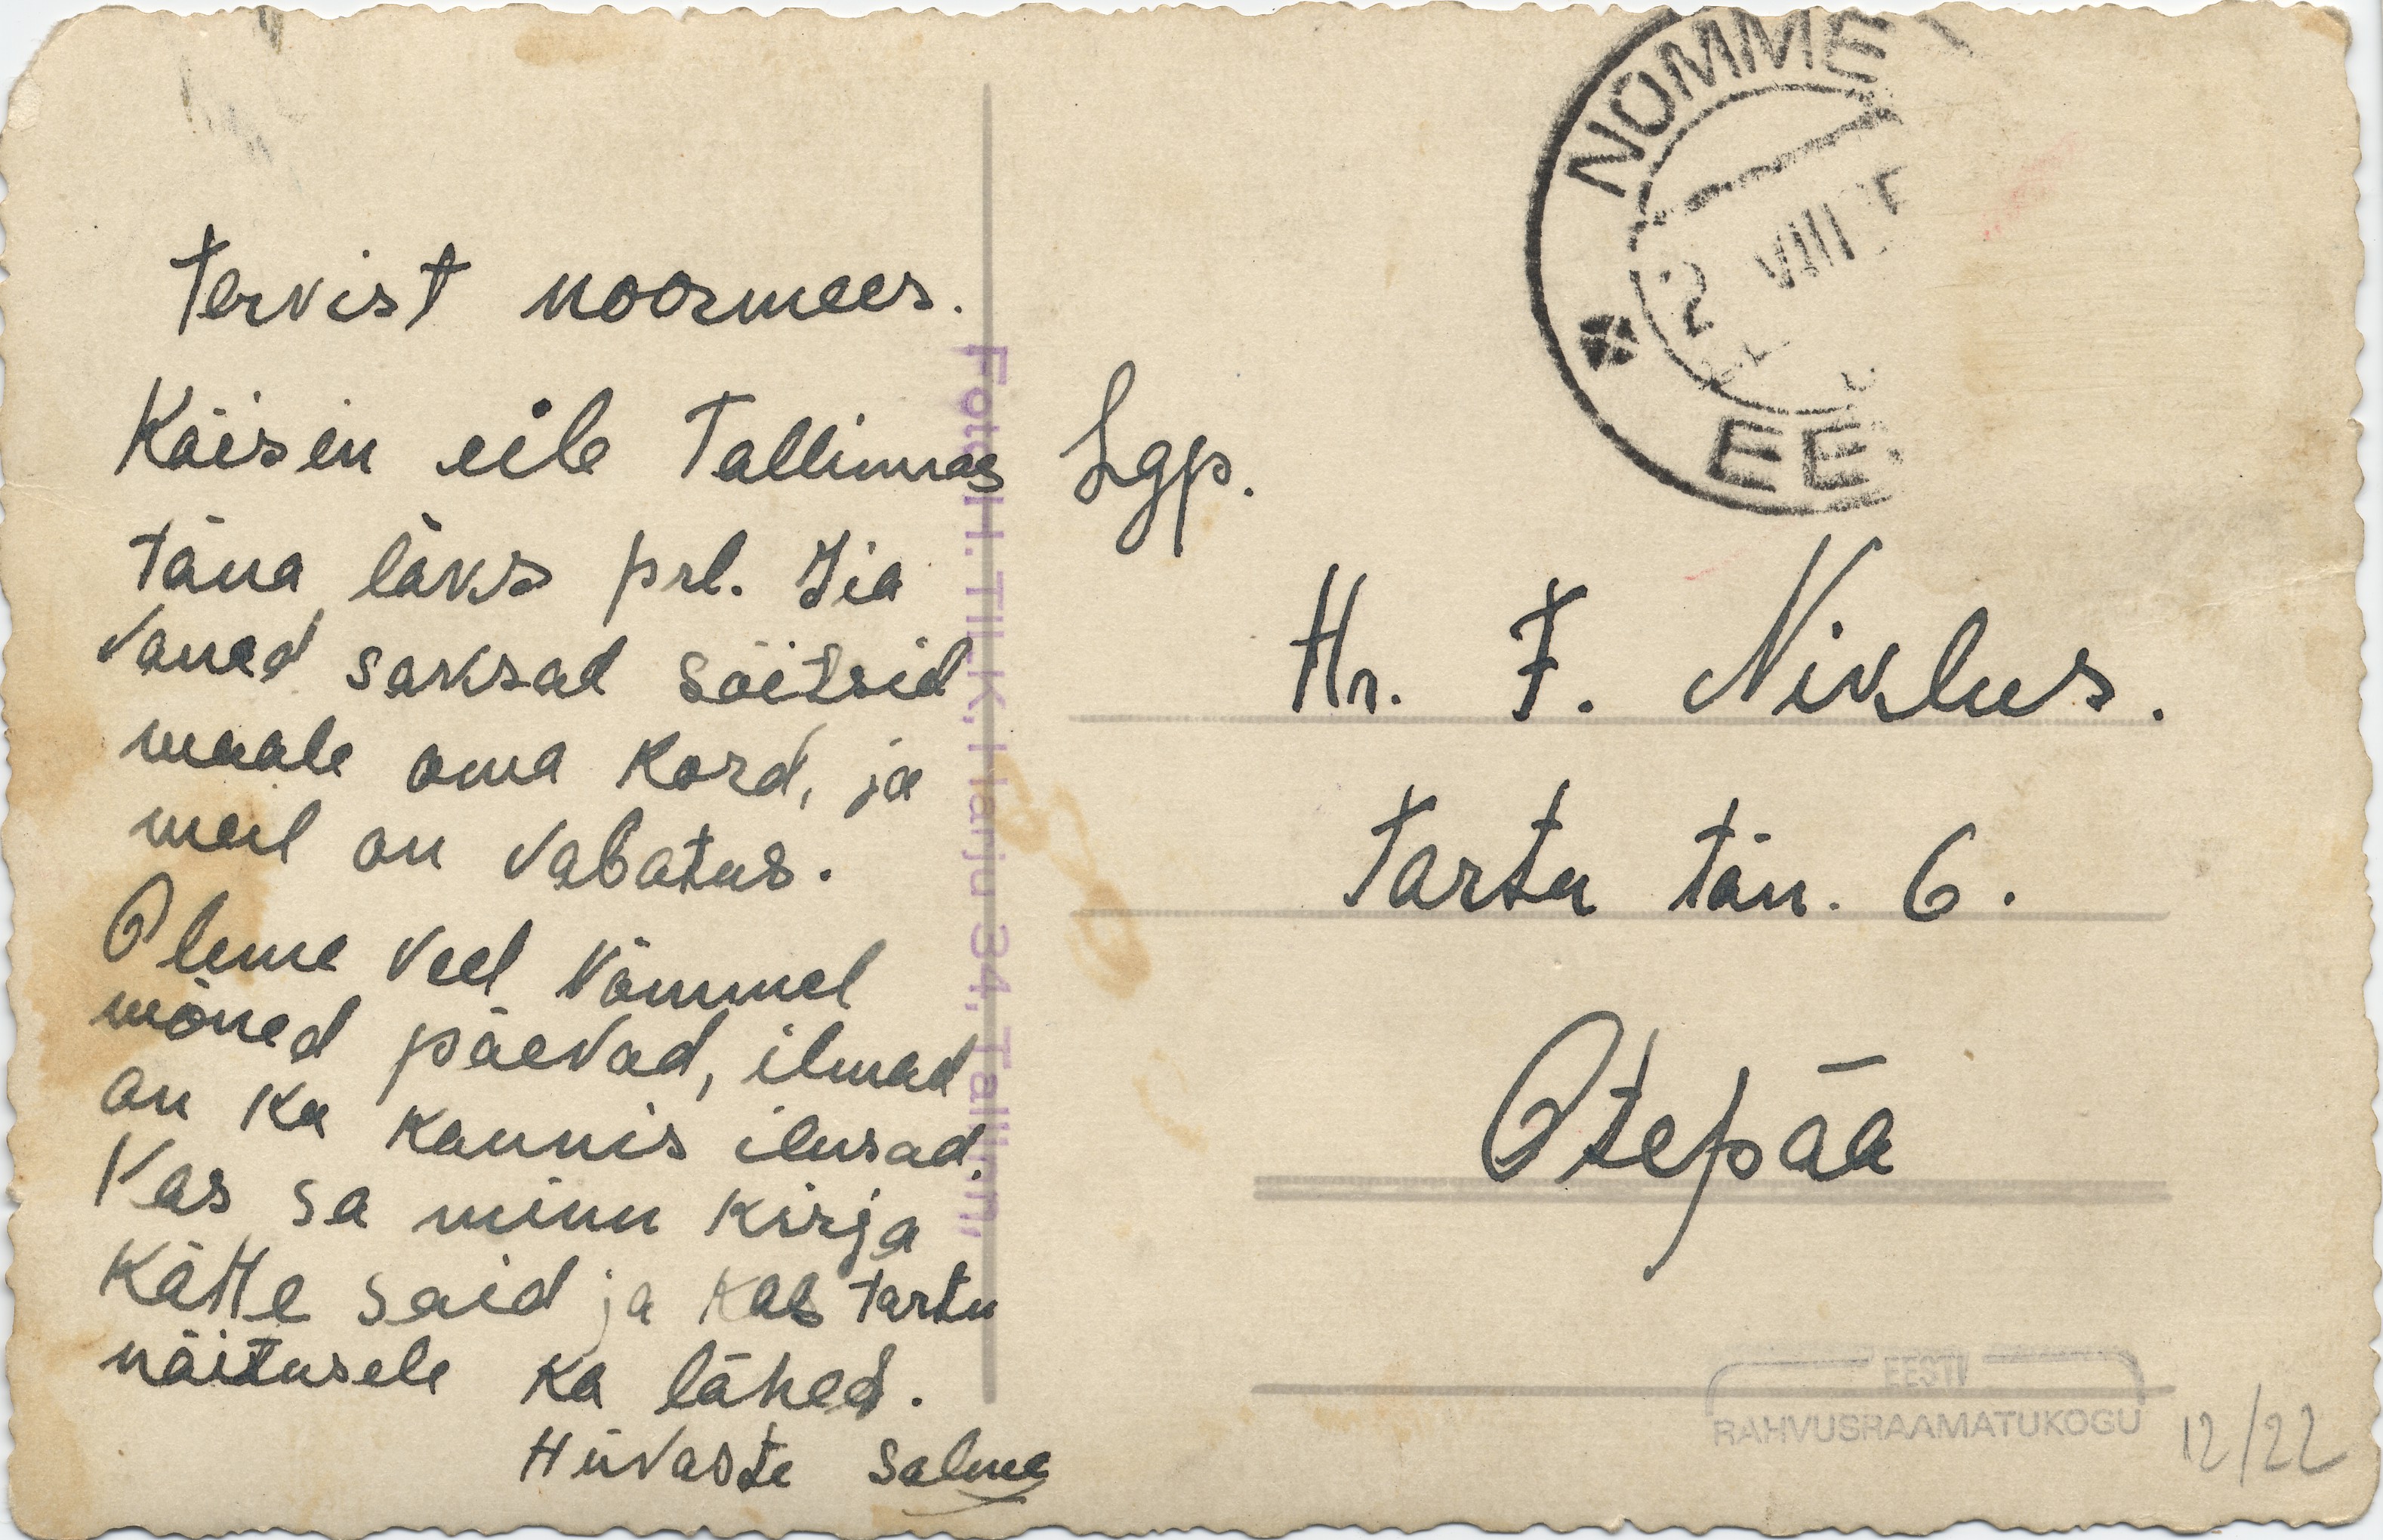 Tervist noormees.
Käisin eile Tallinnas
täna läks prl. Iia
vanad saksad sõitsid
maale oma kord, ja
meil on vabatus.
Oleme veel Nõmmel
mõned päevad, ilmad
on ka kaunis ilusad.
Kas sa minu kirja
kätte said ja kas Tartu
näitusele ka lähed.
Hüvaste Salme
Foto H. TILK, Harju 34, Tallinn
NÕMME
2 VIII
EE
Lgp.
Hr. F. Niklus.
Tartu tän. 6.
Otepää
EESTI
RAHVUSRAAMATUKOGU
12/22